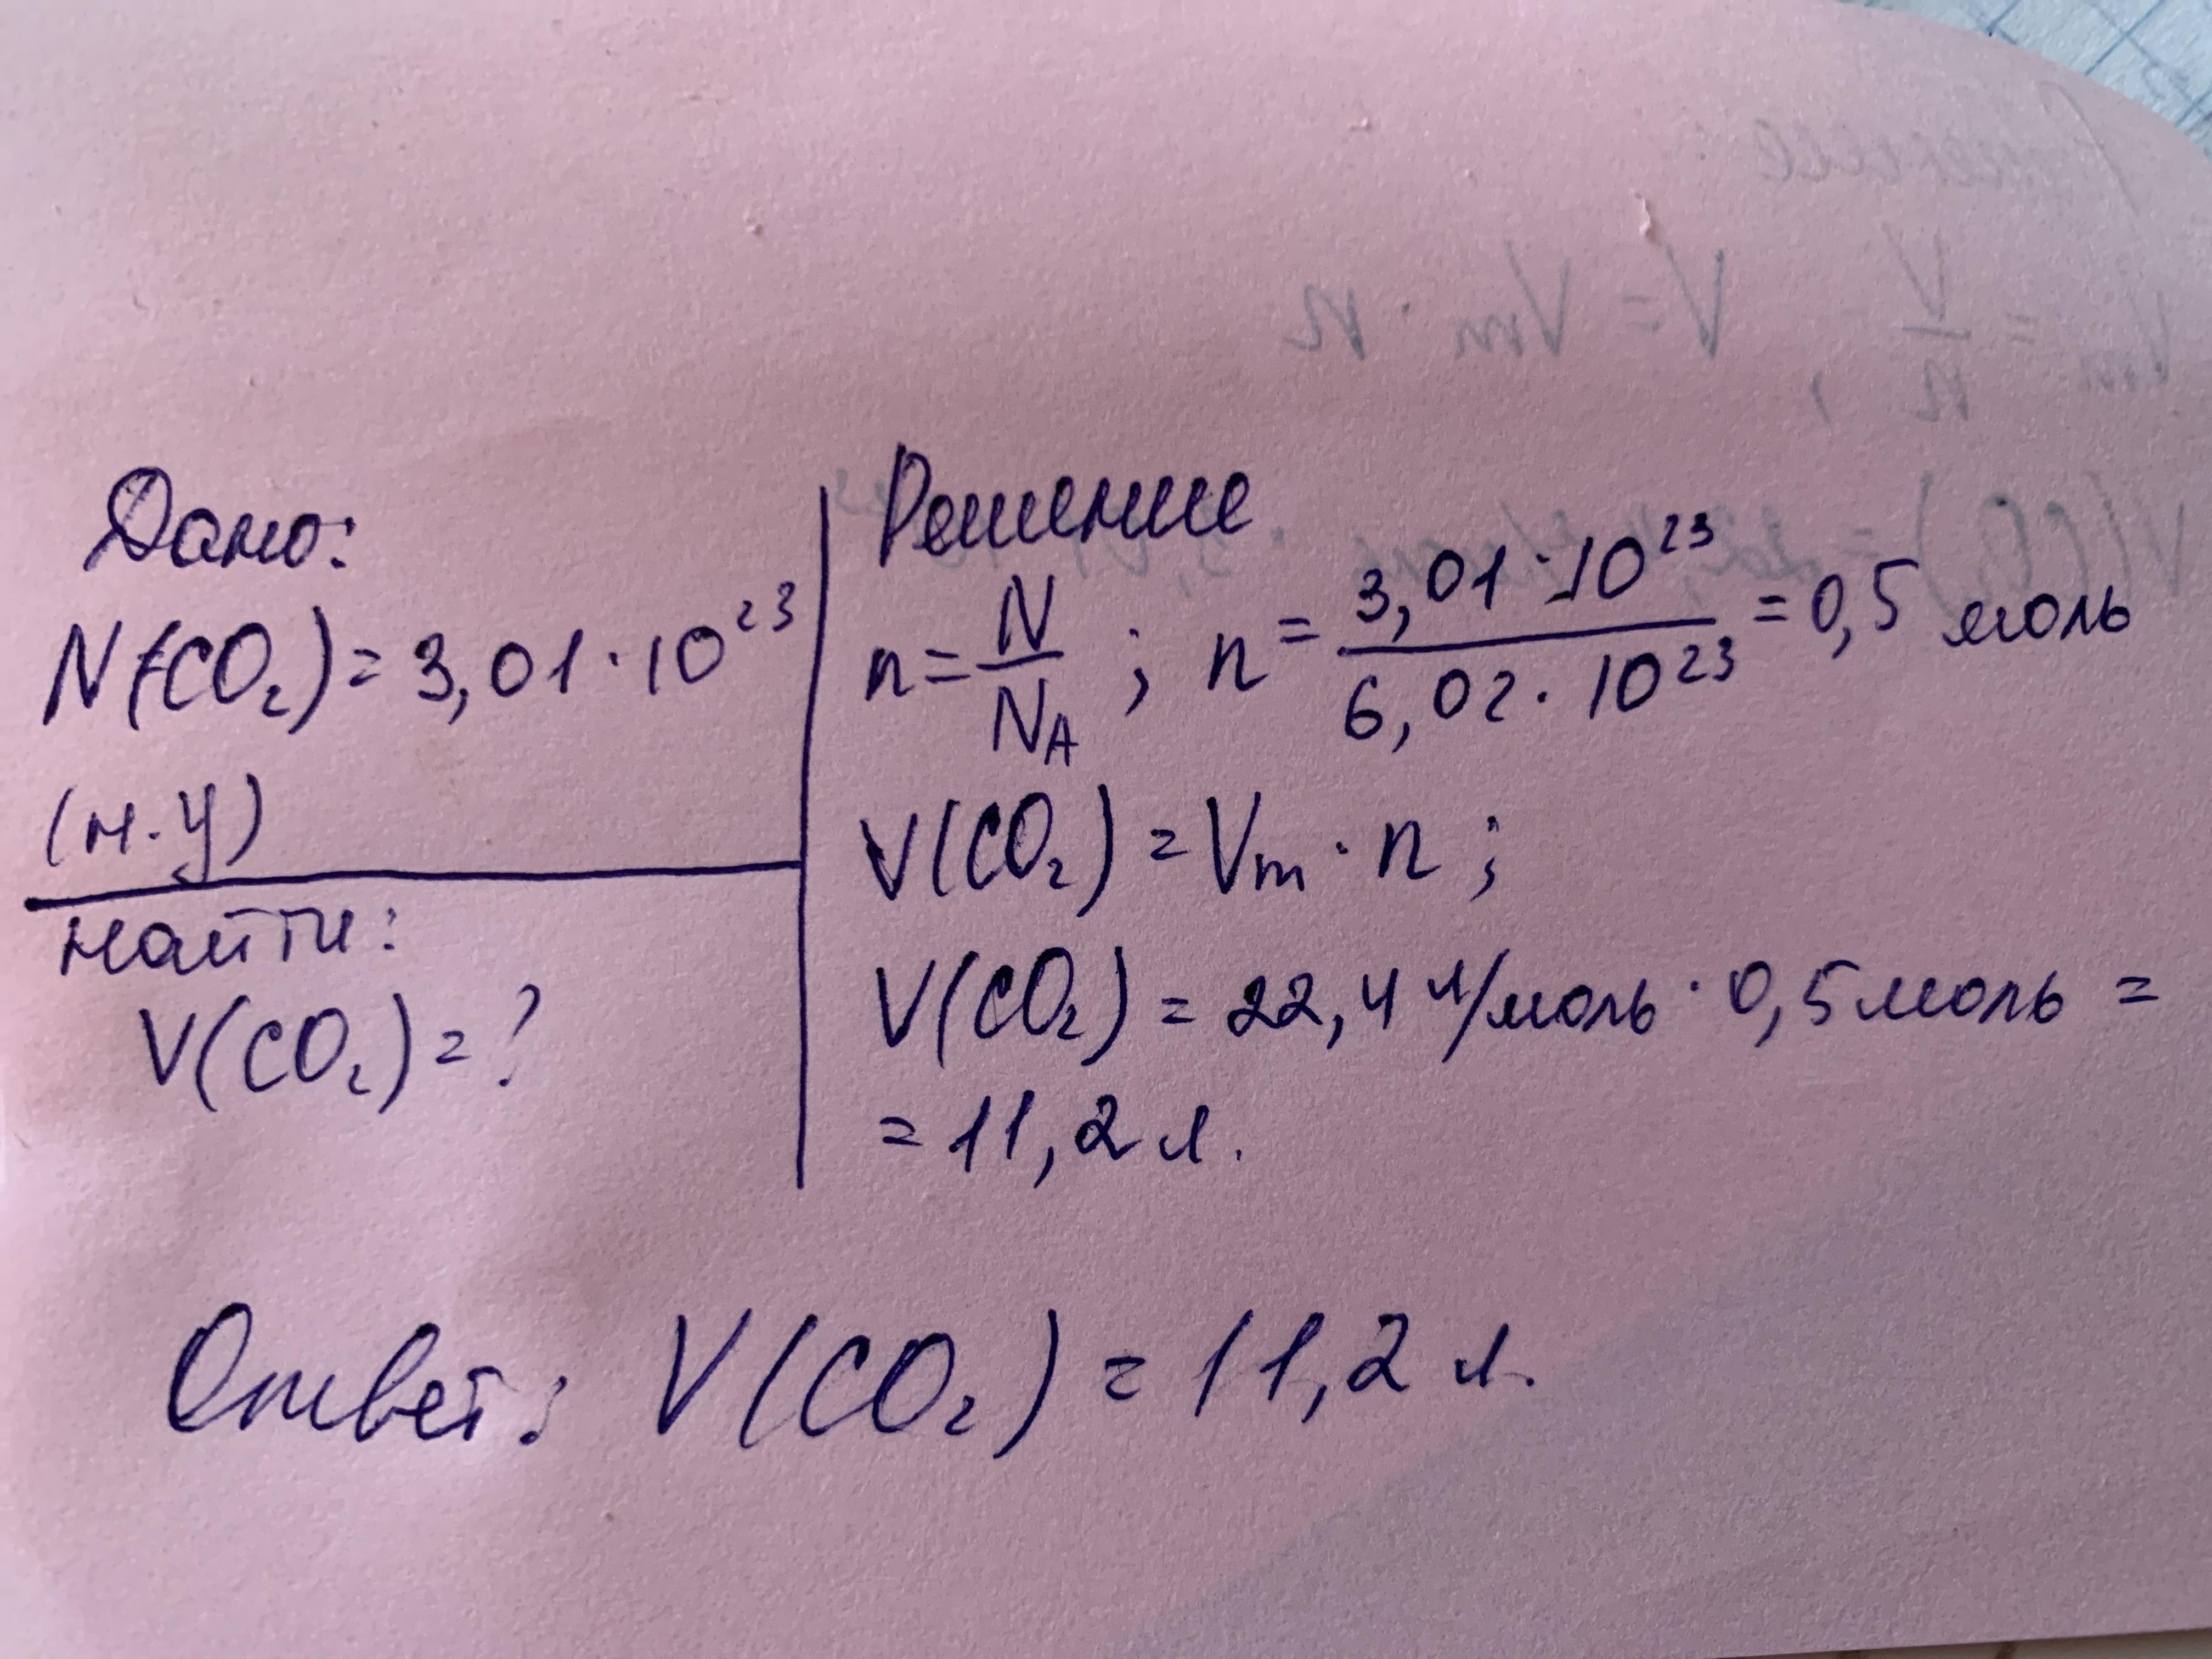 Дано:
N(CO₂) = 3,01 · 10²³
(н.у)
Найти:
V(CO₂) = ?
Решение
n = N/N_A ; n = 3,01 · 10²³ / 6,02 · 10²³ = 0,5 моль
V(CO₂) = Vm · n ;
V(CO₂) = 22,4 л/моль · 0,5 моль =
= 11,2 л.
Ответ: V(CO₂) = 11,2 л.
Решение:
Vm = V/n , V = Vm · n